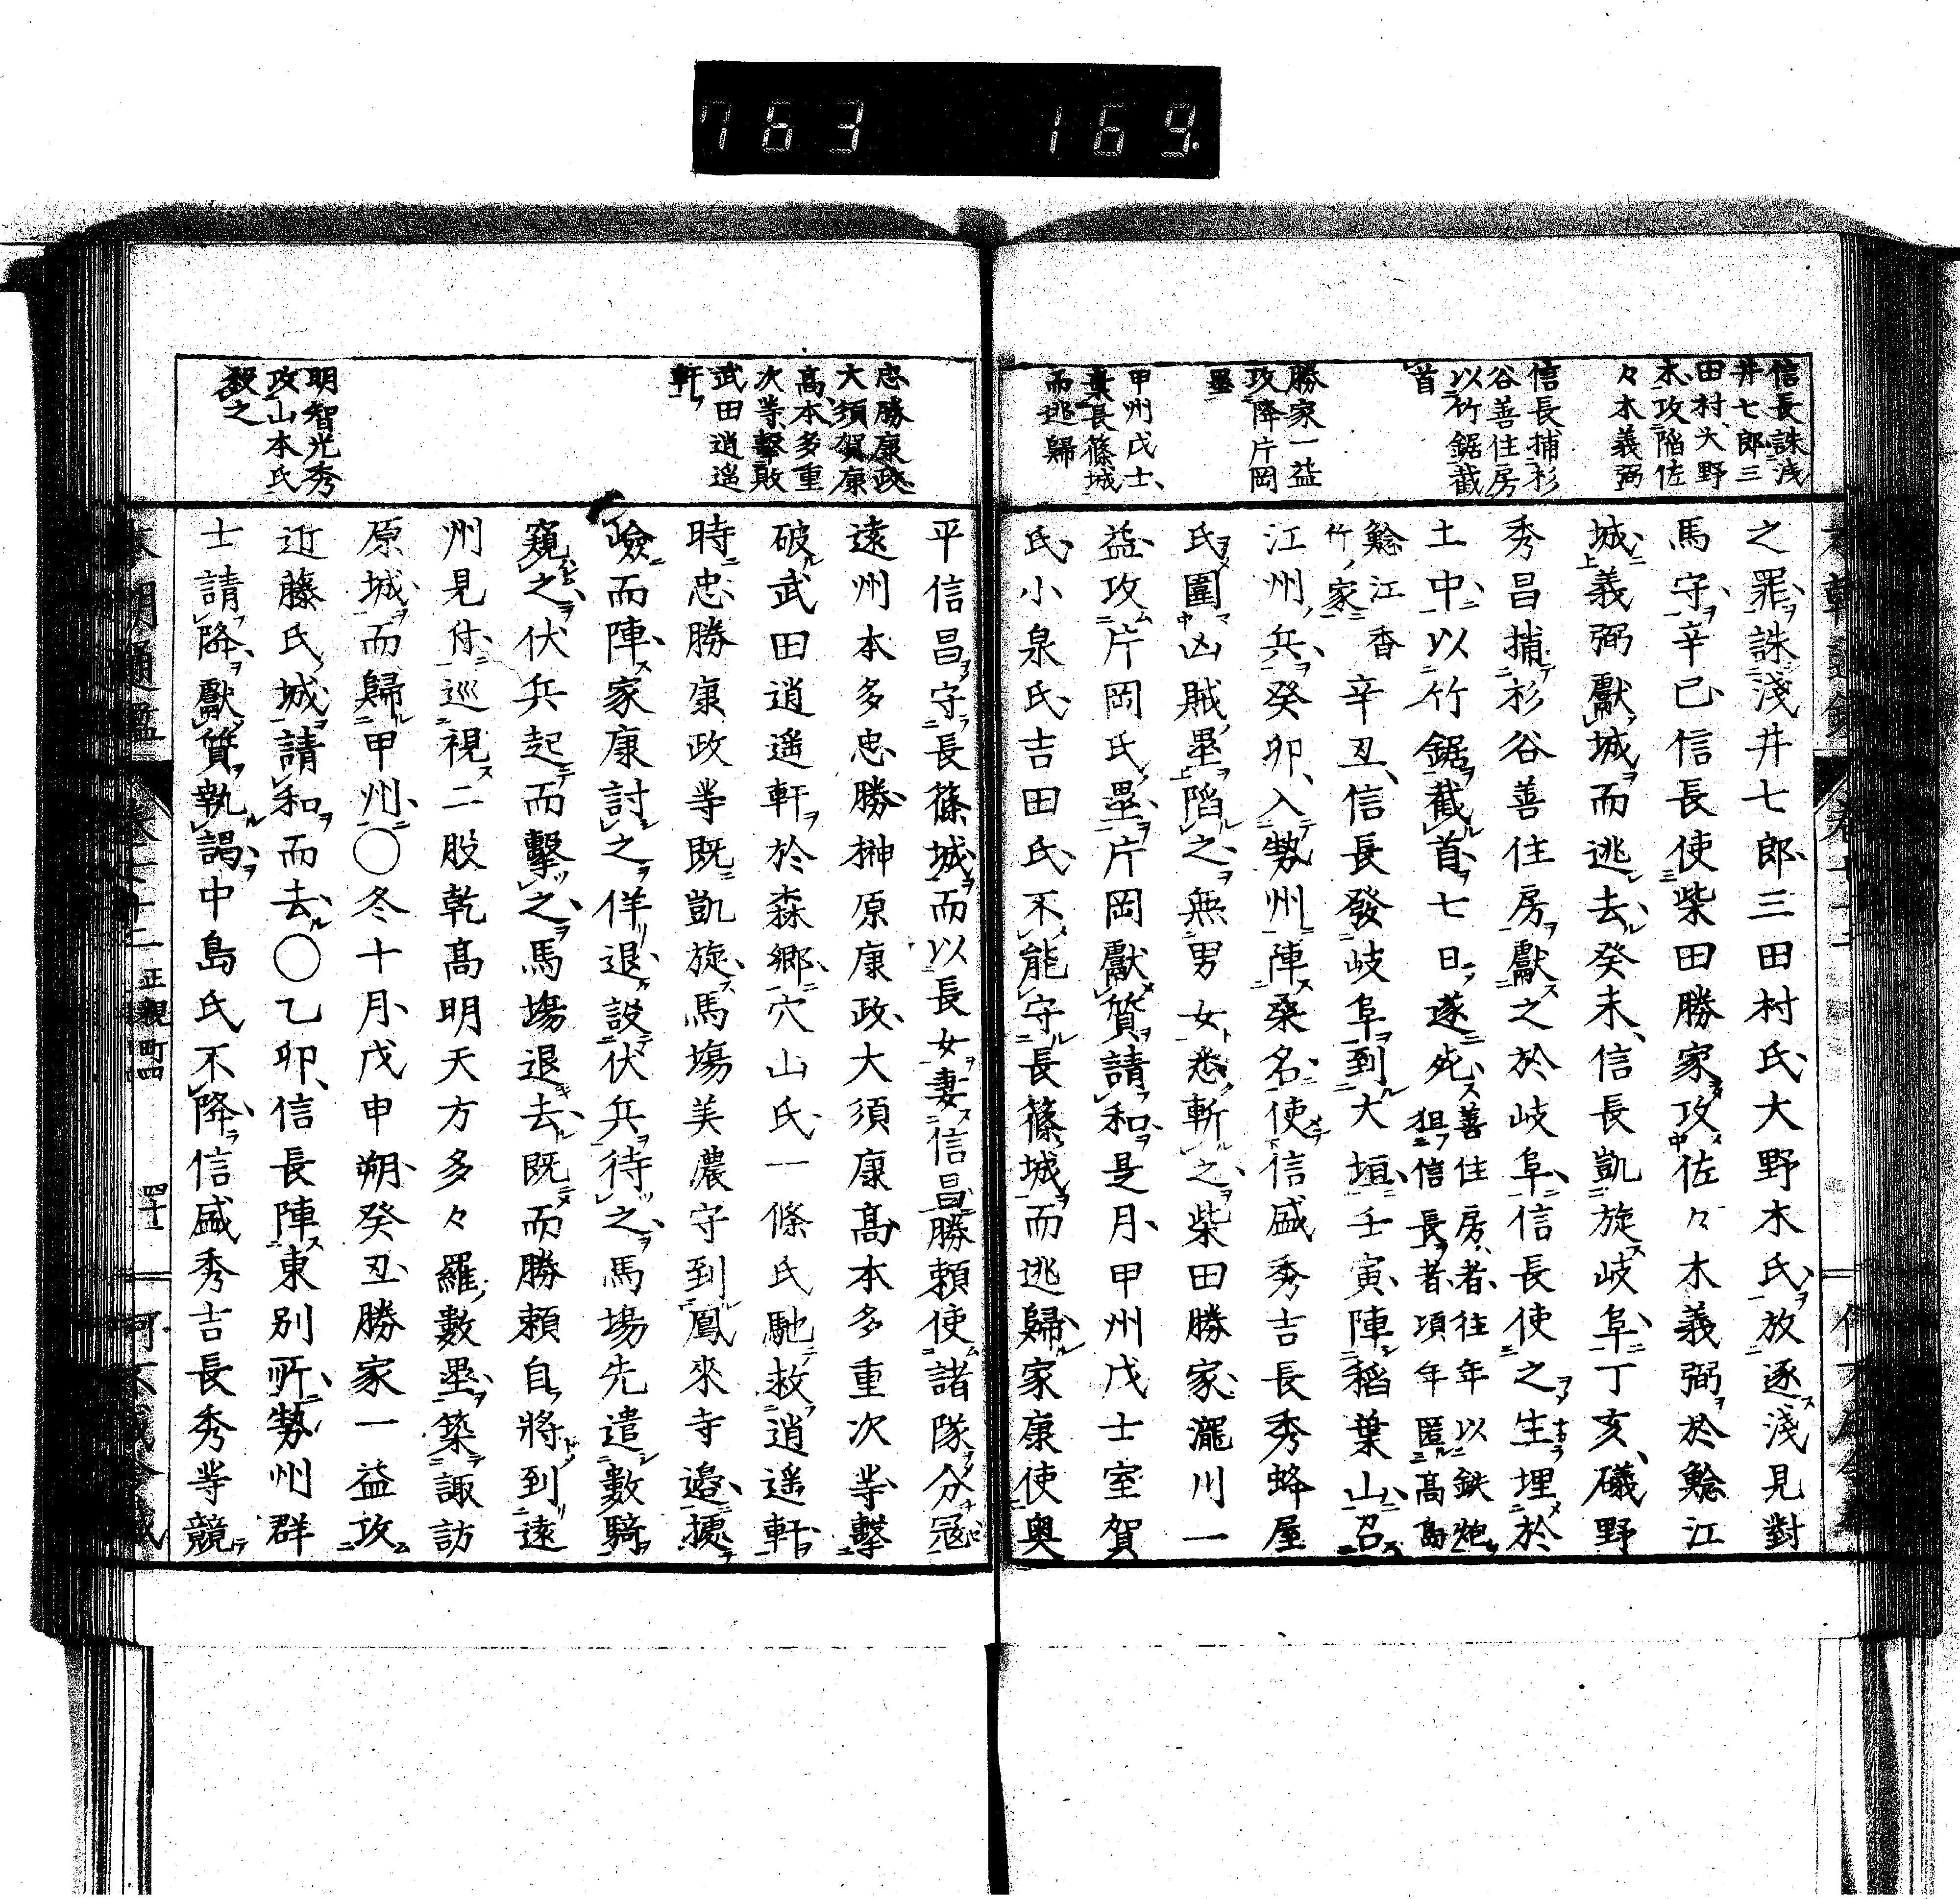 763 169.
信長誅浅
井七郎三
田村大野
木攻陥佐
々木義弼
信長捕杉
谷善住房
以竹鋸截
首
勝家一益
攻降片岡
壘
甲州戍士
棄長篠城
而逃歸
之罪誅淺井七郎三田村氏大野木氏放逐淺見對
馬守辛巳信長使柴田勝家攻佐々木義弼於鯰江
城義弼獻城而逃去癸未信長凱旋岐阜丁亥磯野
秀昌捕杉谷善住房獻之於岐阜信長使之生埋於
土中以竹鋸截首七日遂死善住房者往年以鉄炮
狙信長者項年匿高島
鯰江香
竹家辛丑信長發岐阜到大垣壬寅陣稻葉山召
江州兵癸卯入勢州陣桑名使信盛秀吉長秀蜂屋
氏圍凶賊壘陷之無男女悉斬之柴田勝家瀧川一
益攻片岡氏壘片岡獻質請和是月甲州戍士室賀
氏小泉氏吉田氏不能守長篠城而逃歸家康使奥
忠勝康政
大須賀康
高本多重
次等撃敗
武田逍遥
軒
明智光秀
攻山本氏
殺之
平信昌守長篠城而以長女妻信昌勝頼使諸隊分寇
遠州本多忠勝榊原康政大須康高本多重次等擊
破武田逍遥軒於森郷穴山氏一條氏馳救逍遥軒
時忠勝康政等既凱旋馬場美濃守到鳳來寺邊據
嶮而陣家康討之佯退設伏兵待之馬場先遣數騎
窺之伏兵起而擊之馬場退去既而勝頼自將到遠
州見付巡視二股乾高明天方多々羅數壘築諏訪
原城而歸甲州○冬十月戊申朔癸丑勝家一益攻
近藤氏城請和而去○乙卯信長陣東別所勢州群
士請降獻質執謁中島氏不降信盛秀吉長秀等競
本朝通鑑
正親町四